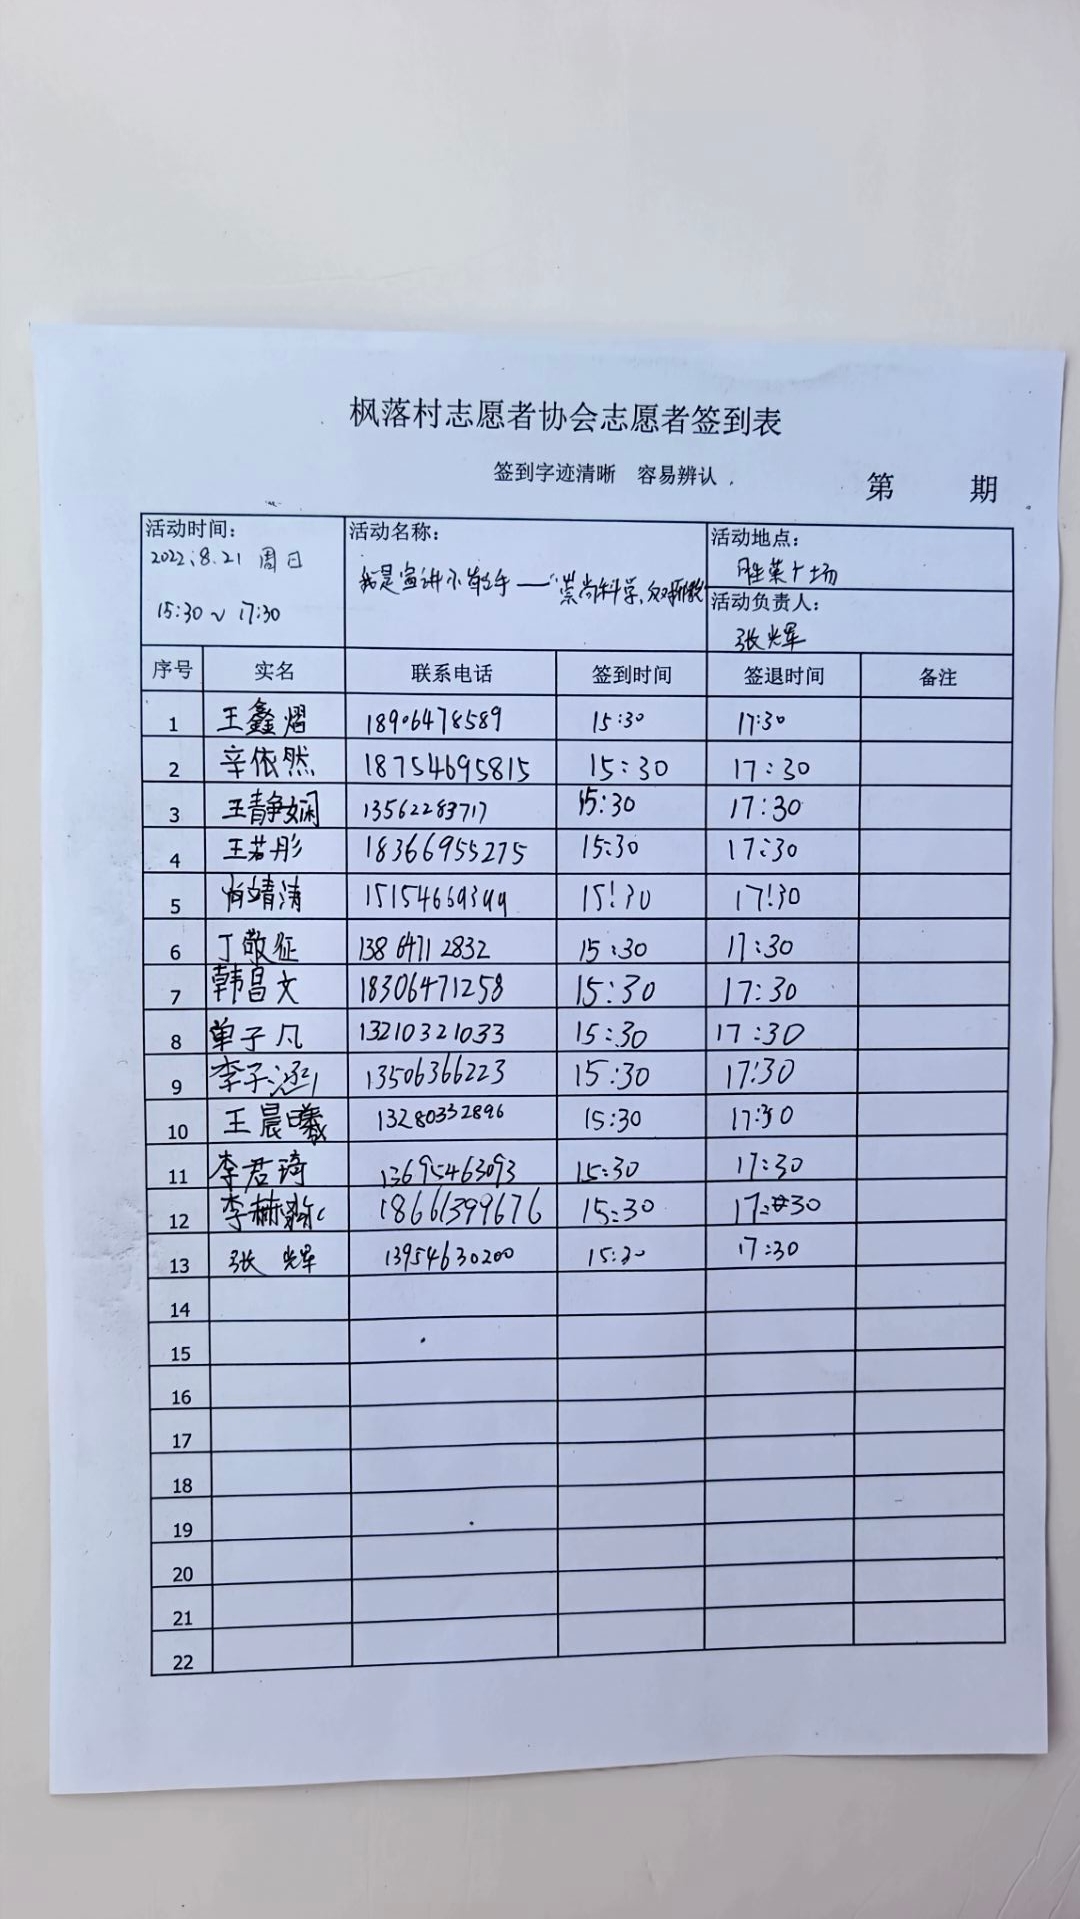 枫落村志愿者协会志愿者签到表
签到字迹清晰 容易辨认
第 期
活动时间: 活动名称: 活动地点:
2022.8.21 周日
15:30~17:30
我是宣讲小能手——"崇尚科学,反对邪教"
胜莱广场
活动负责人:
张光军
序号 实名 联系电话 签到时间 签退时间 备注
1 王鑫熠 18906478589 15:30 17:30
2 辛依然 18754695815 15:30 17:30
3 王静娴 13562283717 15:30 17:30
4 王若彤 18366955275 15:30 17:30
5 肖婧涛 15154669399 15:30 17:30
6 丁敬征 13864712832 15:30 17:30
7 韩昌文 18306471258 15:30 17:30
8 单子凡 13210321033 15:30 17:30
9 李子 13506366223 15:30 17:30
10 王晨曦 13280332896 15:30 17:30
11 李君琦 13695463093 15:30 17:30
12 李赫 18661399676 15:30 17:30
13 张 辉 13954630200 15:30 17:30
14
15
16
17
18
19
20
21
22